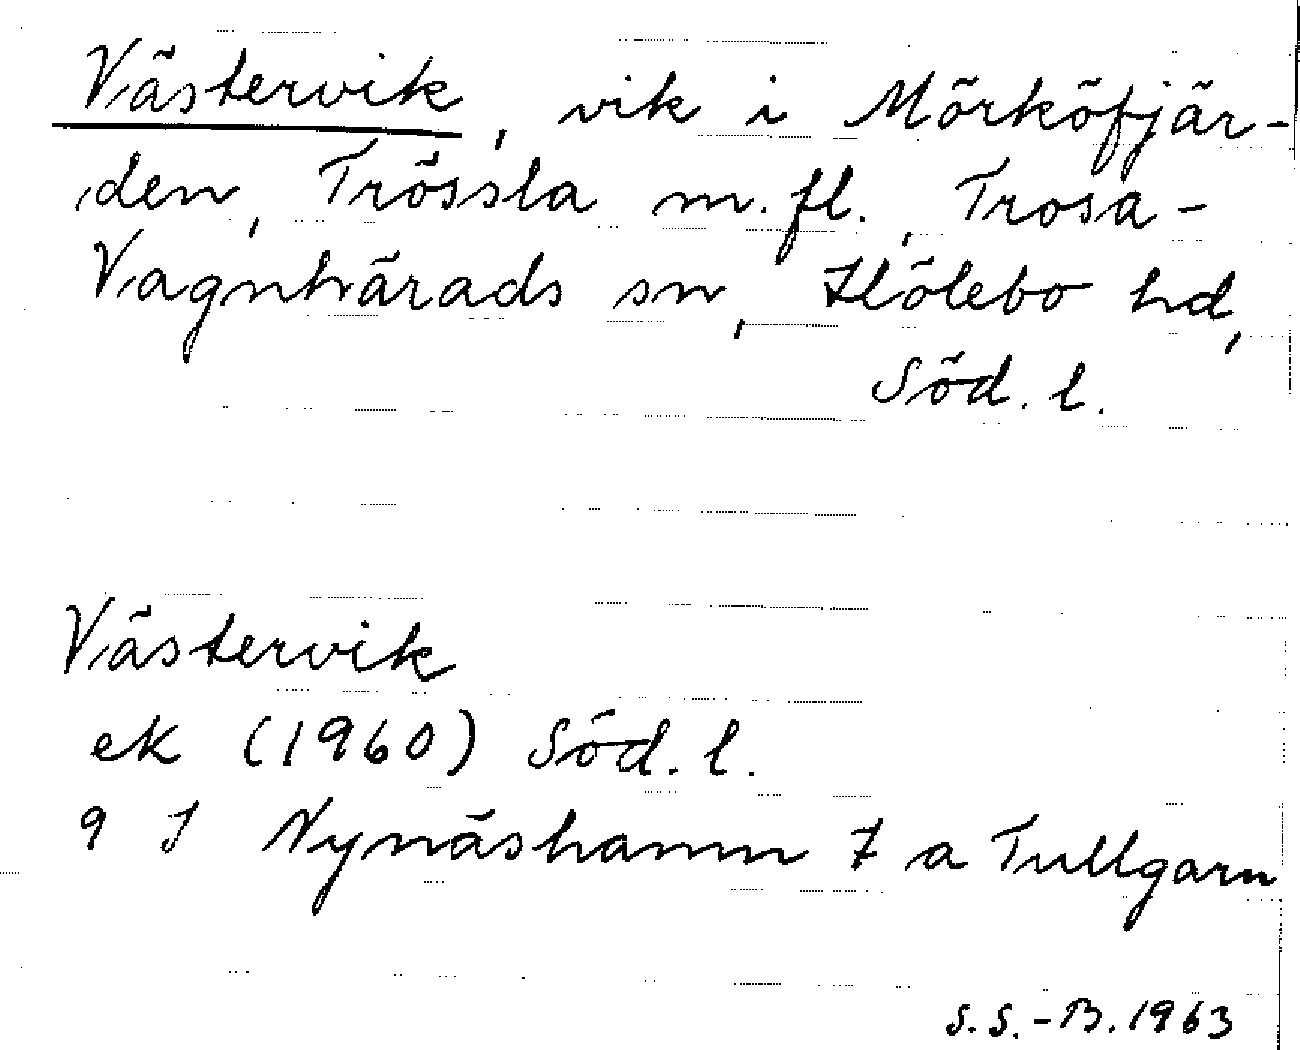 Västervik, vik i Mörköfjär-
den, Trössla m.fl., Trosa-
Vagnhärads sn, Hölebo hd,
Söd. l.
Västervik
ek (1960) Söd. l.
9 I Nynäshamn 7 a Tullgarn
S.S.-B. 1963